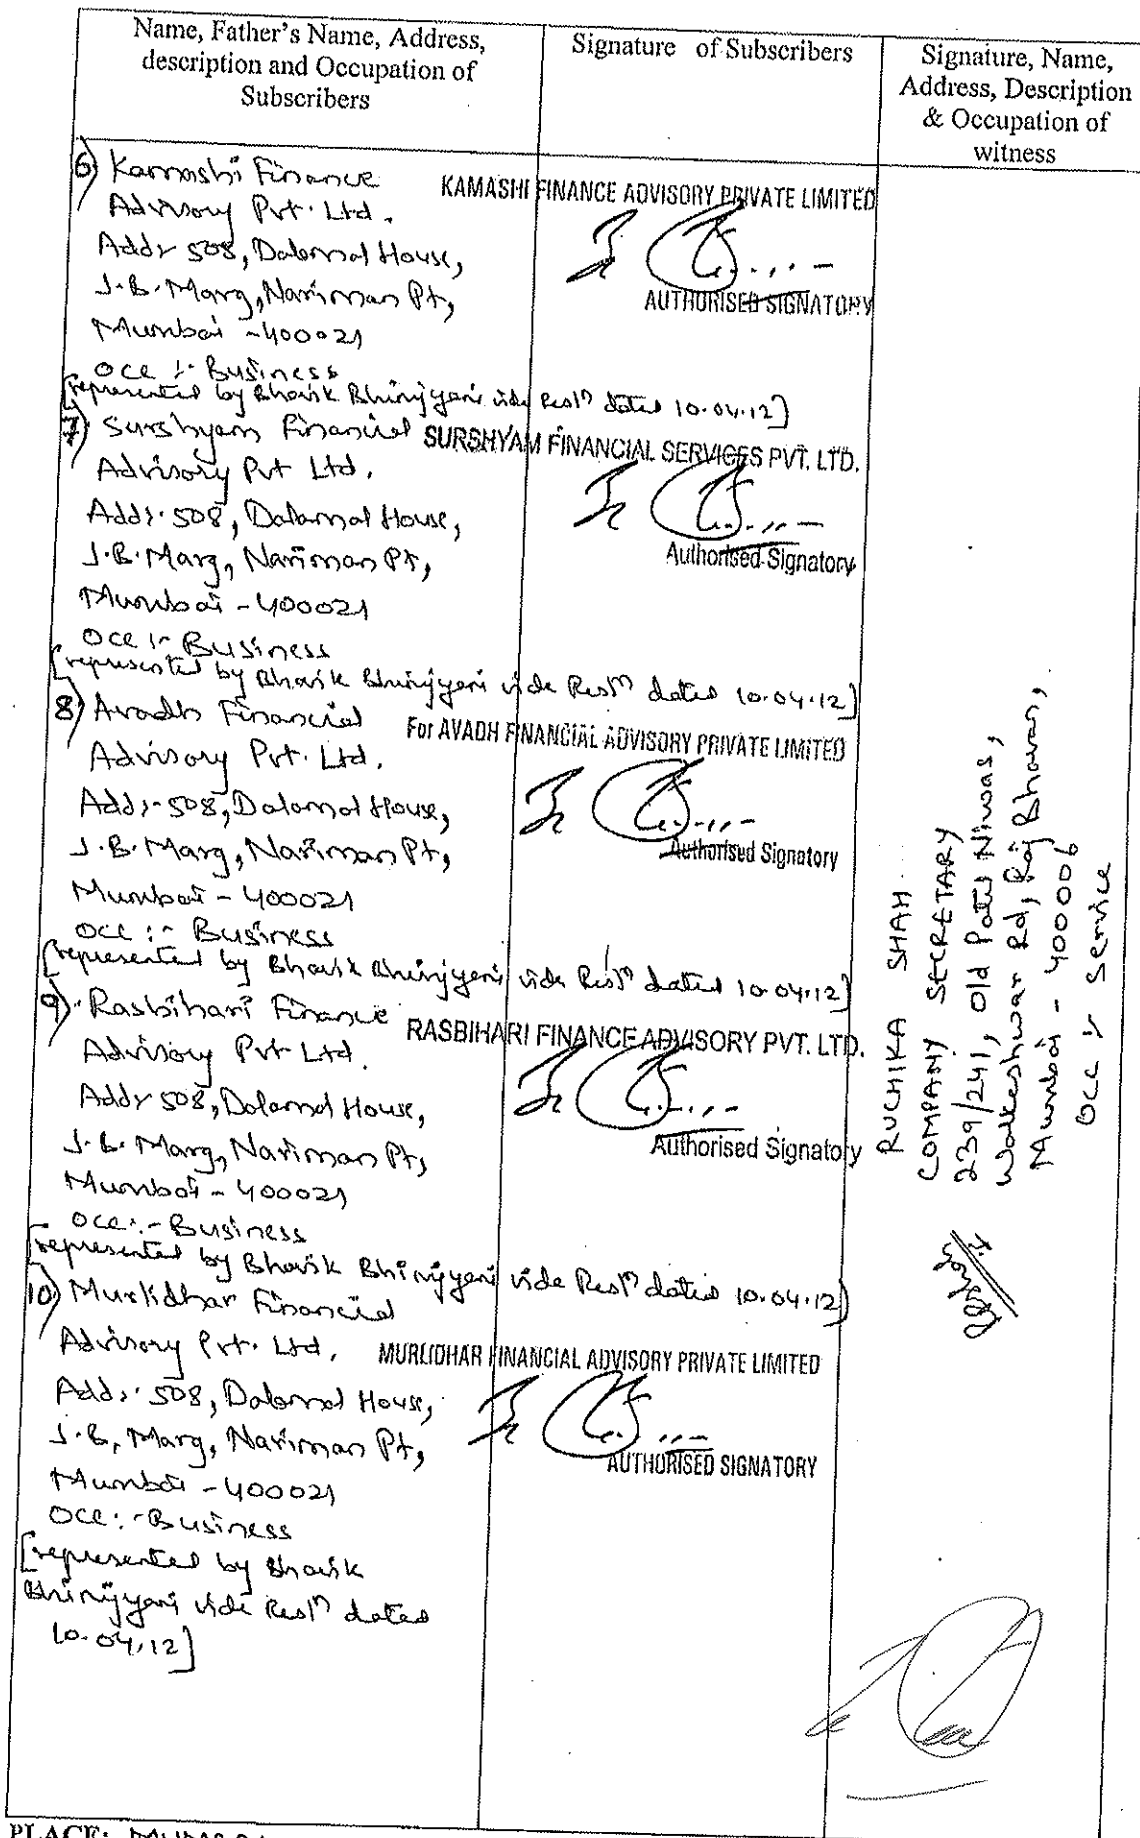 Name, Father's Name, Address,
description and Occupation of
Subscribers
Signature of Subscribers
Signature, Name,
Address, Description
& Occupation of
witness
6) Kamashi Finance
Advisory Pvt. Ltd.
Addr 508, Dalamal House,
J.B. Marg, Nariman Pt,
Mumbai - 400021
Occ :- Business
[represented by Bhavik Bhinjyani vide Resln dated 10.04.12]
KAMASHI FINANCE ADVISORY PRIVATE LIMITED
AUTHORISED SIGNATORY
7) Surshyam Financial
Advisory Pvt Ltd.
Addr. 508, Dalamal House,
J.B. Marg, Nariman Pt,
Mumbai - 400021
Occ :- Business
[represented by Bhavik Bhinjyani vide Resln dated 10.04.12]
SURSHYAM FINANCIAL SERVICES PVT. LTD.
Authorised Signatory
8) Avadh Financial
Advisory Pvt. Ltd.
Addr-508, Dalamal House,
J.B. Marg, Nariman Pt,
Mumbai - 400021
Occ :- Business
[represented by Bhavik Bhinjyani vide Resln dated 10.04.12]
For AVADH FINANCIAL ADVISORY PRIVATE LIMITED
Authorised Signatory
9) Rasbihari Finance
Advisory Pvt Ltd.
Addr 508, Dalamal House,
J.B. Marg, Nariman Pt,
Mumbai - 400021
Occ :- Business
[represented by Bhavik Bhinjyani vide Resln dated 10.04.12]
RASBIHARI FINANCE ADVISORY PVT. LTD.
Authorised Signatory
10) Murlidhar Financial
Advisory Pvt. Ltd.
Addr. 508, Dalamal House,
J.B, Marg, Nariman Pt,
Mumbai - 400021
Occ :- Business
[represented by Bhavik
Bhinjyani vide Resln dated
10.04.12]
MURLIDHAR FINANCIAL ADVISORY PRIVATE LIMITED
AUTHORISED SIGNATORY
RUCHIKA SHAH
COMPANY SECRETARY
239/241, Old Patel Niwas,
Walkeshwar Rd, Raj Bhavan,
Mumbai - 400006
Occ :- Service
PLACE: MUMBAI